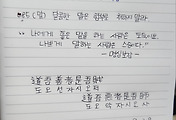 (말) 달콤한 말은
"나에게 좋은 말을 하는 사람은 도둑이요,
나쁘게 말하는 사람은 스승이다."
- 명심보감 -
道吾善者是吾賊
도 오 선 자 시 오 적
道吾惡者是吾師
도 오 악 자 시 오 사